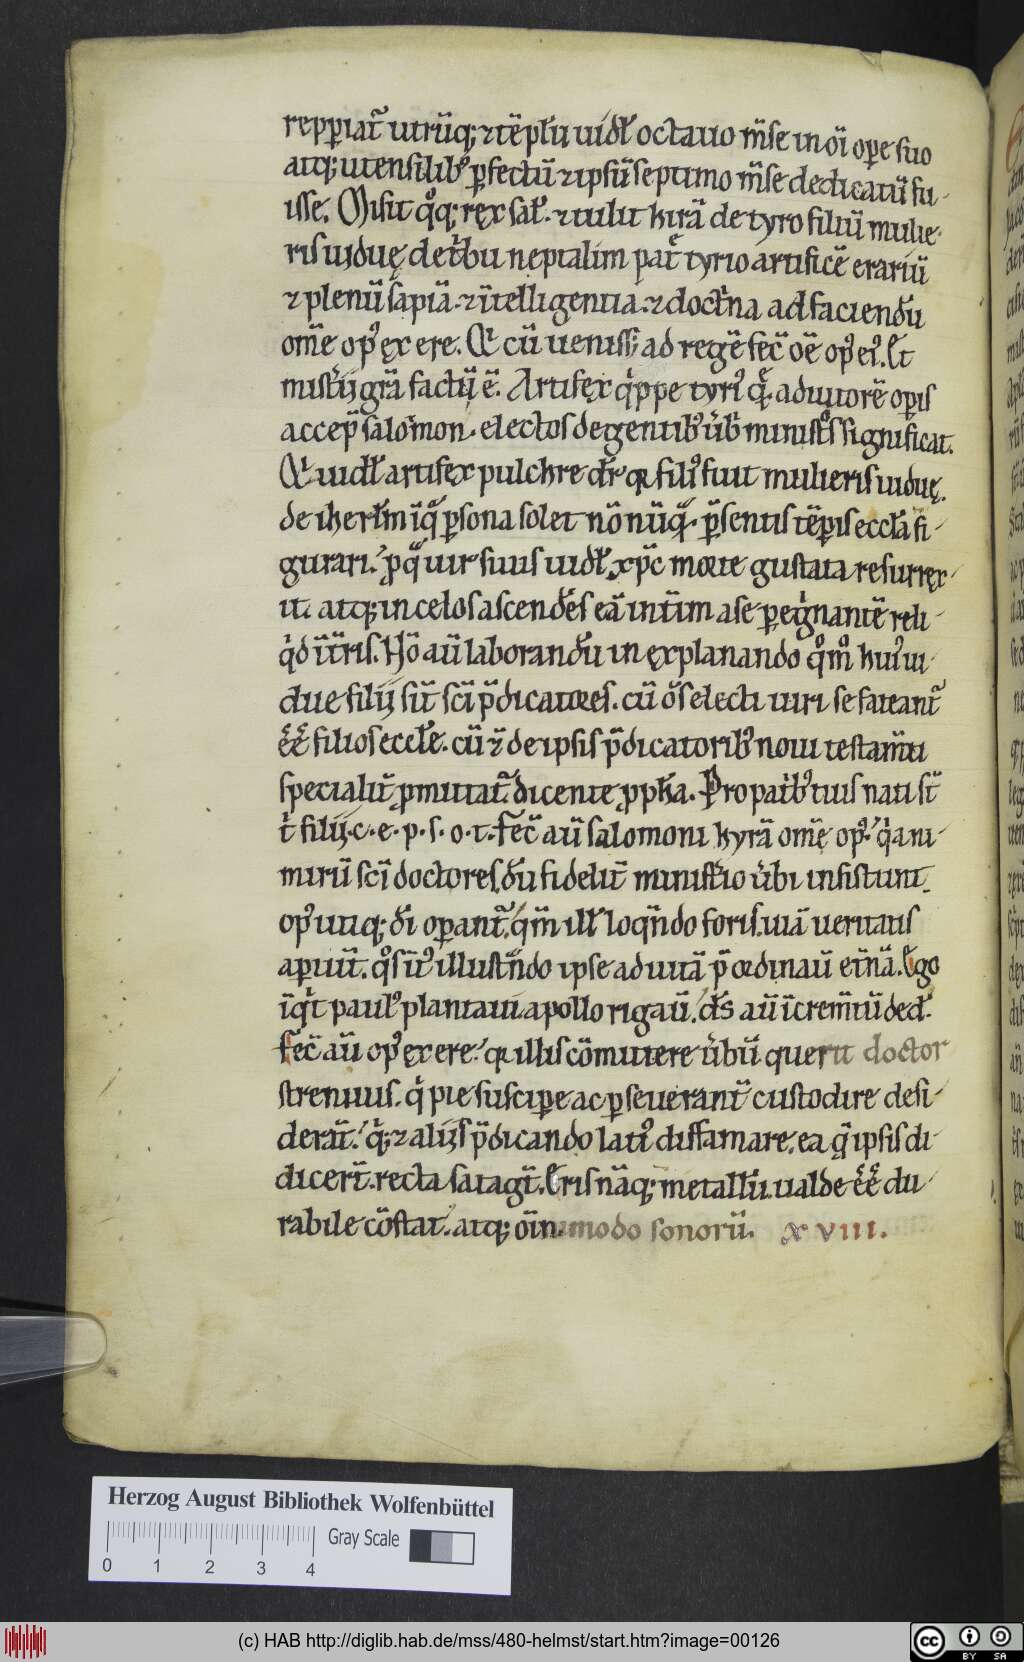 repꝑiat᷒ utrūq; ⁊ tēpłu uidł octauo m̄se in oī oꝑe suo
atq; utensilib᷒ ꝑfectū ⁊ ipsū septimo m̄se dedicatū fu-
isse. Misit qͦq; rex sał. ⁊ tulit hirā de tyro filiū mulie-
ris uiduę de tͥbu neptalim patͤ tyrio artificē erariū
⁊ plenū sapiā. ⁊ ītelligentia. ⁊ doctͥna ad faciendū
om̄e op᷒ ex ere. Qͥ cū ueniss; ad regē fec̄ oē op᷒ ei᷒. Et
mistͥij grā factū ē. Artifex qͥppe tyri᷒ qͤ adiutorē oꝑis
accep̄ salomon. electos de gentib᷒ ūb ministͦs significat.
Qͥ uidł artifex pulchre dr̄ qꝛ fili᷒ fuit mulieris uiduę.
de iherłm īqͣ ꝑsona solet nōnūqͣ p̄sentis tēꝑis ecclā fi-
gurari. ꝓ qͣ uir suus uidł xp̄c morte gustata resurrex-
it. atq; in celos ascendēs eā intīm a se ꝑegͥnantē reli-
qͥd ī tr̄is. Nō aū laborandū in explanando qͦm̊ hui᷒ ui-
due filij sūt sc̄i p̄dicatores. cū o᷒s electi uiri se fateant᷒
ēē filios eccłe. cū ⁊̄ de ipsis p̄dicatorib᷒ noui testam̄ti
specialit̄ ꝓmittat᷒. dicente ꝓpħa. Pro patͥb᷒ tuis nati st̄
tͥ filij. c. e. p. s. o. t. Fec̄ aū salomoni hyrā om̄e op᷒. qͥa ni-
mirū sc̄i doctores. dū fidelit̄ ministͥio ūbi insistunt.
op᷒ utiq; dī oꝑant᷒. qm̄ illˢ loqn̄do foris. uiā ueritatis
aperiūt. qͦs īt᷒ illustn̄do ipse ad uitā p̄ordinaū etn̄ā. Ego
īqͥt paul᷒ plantaui. apollo rigaū. dˢ aū īcrem̄tū ded̄.
Fec̄ aū op᷒ ex ere. qꝛ illis cōmittere ūbū querit doctor
strenuus. qͥ pie suscipe ac ꝑseuerant̄ custodire desi-
derāt. qͥ; ⁊ alijs p̄dicando lati᷒ diffamare. ea q̄ ipsi di-
dicert̄. recta satagt̄. Eris nāq; metallū. ualde ēē du-
rabile cōstat. atq; oīnmodo sonorū. XVIII.
Herzog August Bibliothek Wolfenbüttel
0 1 2 3 4 Gray Scale
(c) HAB http://diglib.hab.de/mss/480-helmst/start.htm?image=00126
cc BY SA